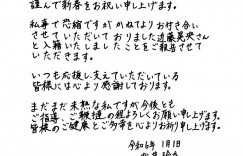 謹んで新春をお祝い申し上げます。
私事で恐縮ですがかねてよりお付き合い
させていただいておりました近藤晃央さん
と入籍いたしましたことをご報告させて
いただきます。
いつも応援し支えていただいている
皆様には心より感謝しております。
まだまだ未熟な私ですが今後とも
ご指導、ご鞭撻の程よろしくお願い申し上げます。
皆様のご健康とご多幸を心よりお祈り申し上げます。
令和6年1月1日